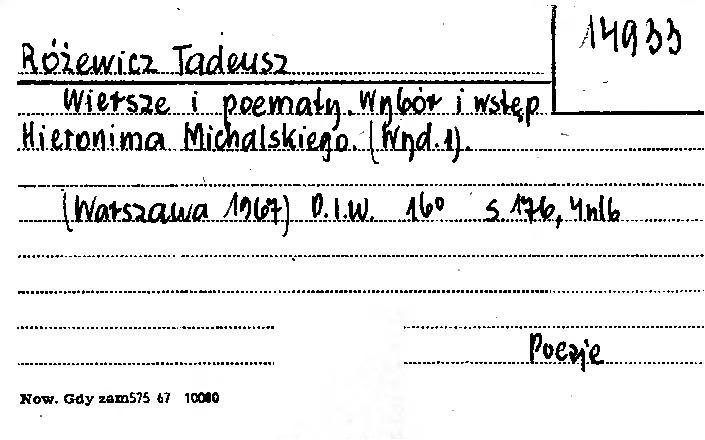 14933
Różewicz Tadeusz
Wiersze i poematy. Wybór i wstęp
Hieronima Michalskiego. (Wyd. 1).
(Warszawa 1967) P.I.W. 16° s 176, 4nlb
Poezje
Now. Gdy zam575 67 10000